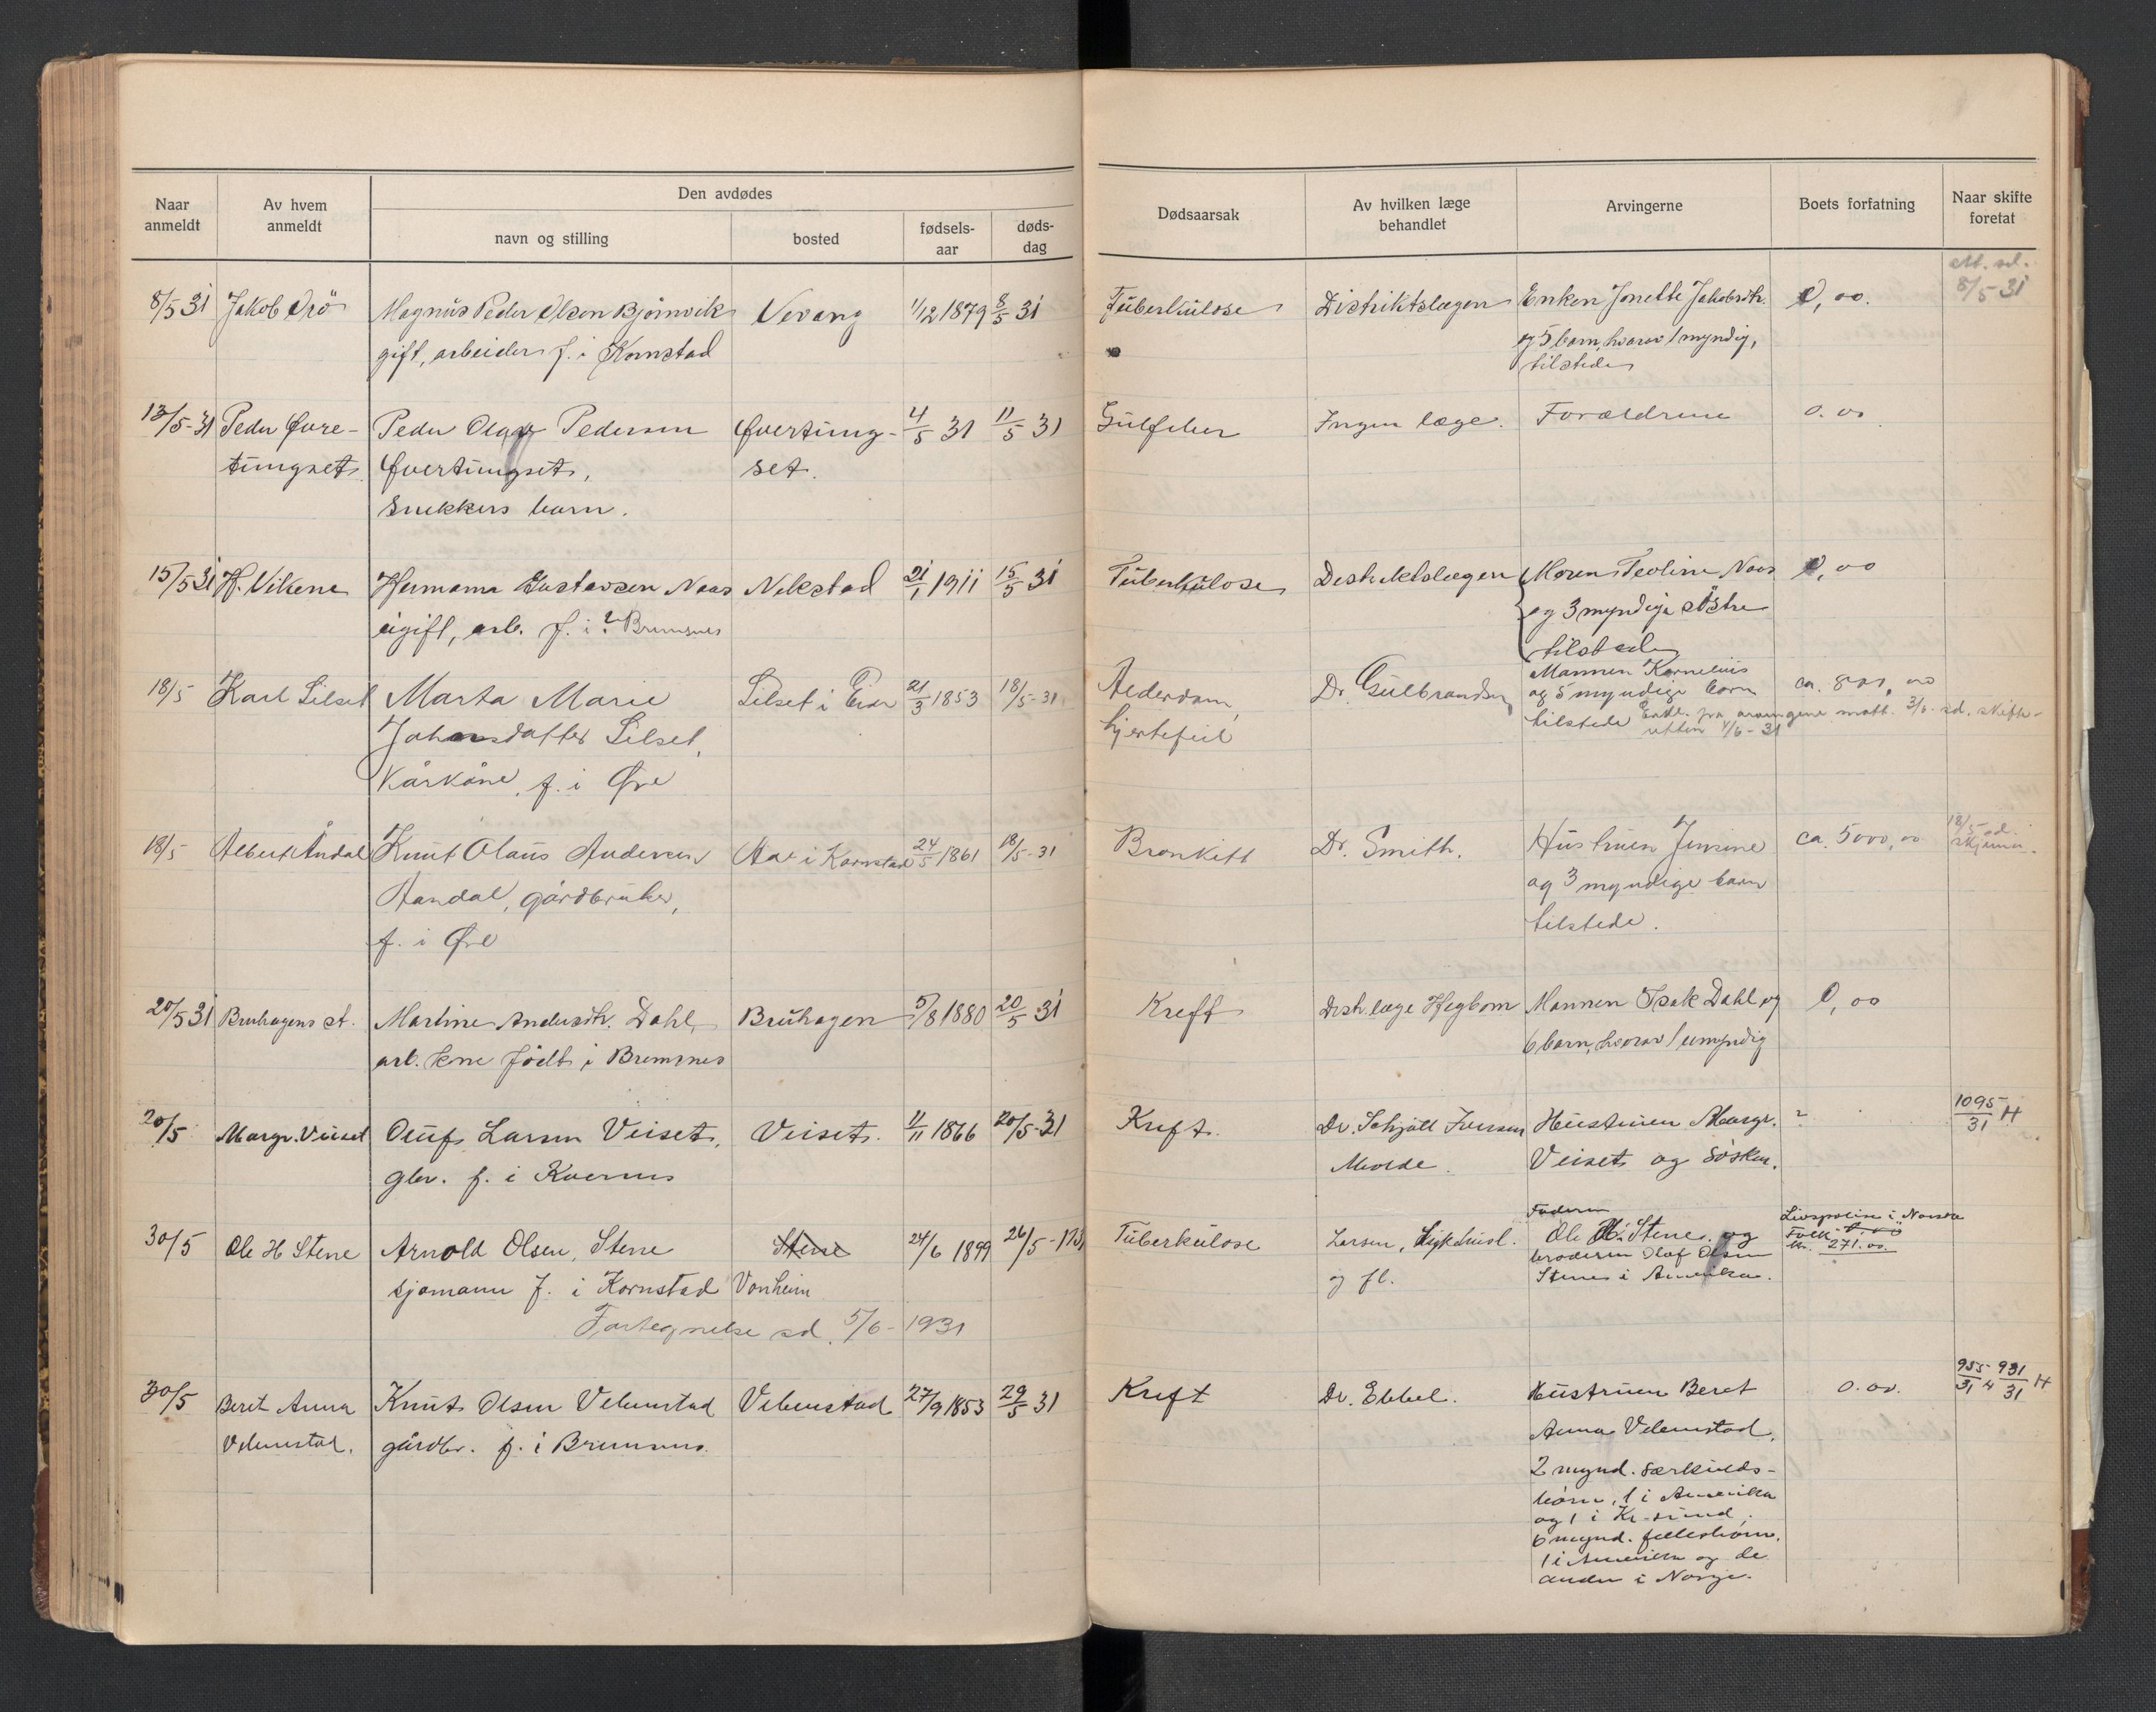 Naar anmeldt
Av hvem anmeldt
Den avdødes
navn og stilling
bosted
fødsels-aar
døds-dag
Dødsaarsak
Av hvilken læge behandlet
Arvingerne
Boets forfatning
Naar skifte foretat
8/5 31 Jakob Orö Magnus Peder Olsen Bjørnvik Vevang 1/12 1879 8/5 31 Tuberkulose Distriktslægen Enken Jonette Jakobsdtr. 0,00. 8/5 31
gift, arbeider f. i Kornstad og 5 barn, hvorav 1 myndig,
tilstede
13/5-31 Peder Øvre- Peder Olav Pedersen Øvertung- 4/5 31 11/5 31 Gulfeber Ingen læge. Forældrene 0.00
tungset Øvertungset, set.
Snekkers barn.
15/5 31 H. Vikene Hermana Gustavsen Naas Nekstad 21/1 1911 15/5 31 Tuberkulose Distriktslægen Moren Teoline Naas 0,00
ugift, arb. f. i ? Bremsnes og 3 myndige søstre
tilstede
18/5 Karl Silset Marta Marie Silset i Eide 21/3 1853 18/5-31 Alderdom, Dr. Gulbrandsen Mannen Kornelius ca. 800,00
Johansdatter Silset, hjertefeil og 5 myndige barn
Kårkone, f. i Øre tilstede Erkl. fra arvingene mott. 3/6. sd. skifte-
retten 4/6-31
18/5 Albert Åndal Knut Olaus Andersen Aa i Kornstad 24/5 1861 18/5-31 Bronkitt Dr. Smith. Hustruen Jensine ca. 5000,00 18/5 sd. skjema
Aandal, gårdbruker, og 3 myndige barn
f. i Øre tilstede.
20/5 31 Bruhagens st. Martine Andersdtr. Dahl, Bruhagen 5/8 1880 20/5 31 Kreft Distr. læge Hegbom Mannen Isak Dahl og 0,00
arb. kone født i Bremsnes 6 barn, hvorav 1 umyndig
20/5 Margr. Veiset Oluf Larsen Veiset, Veiset. 11/11 1866 20/5-31 Kreft. Dr. Schjøtt Iversen Hustruen Margr. ? 1095/31 H
gbr. f. i Kvernes Molde. Veiset og søsken.
30/5 Ole H Stene Arnold Olsen Stene Stene 24/6 1899 26/5-193 Tuberkulose Larsen, Sykehusl. Faderen Ole H. Stene og Livspolise i Norske
sjømann f. i Kornstad Vonheim og fl. broderen Olaf Olsen Folk kr. 271.00.
Stene i Amerika.
Fortegnelse sd. 5/6-1931
30/5 Beret Anna Knut Olsen Vebenstad Vebenstad 27/9 1853 29/5 31 Kreft Dr. Ebbel. Hustruen Beret 0.00. 955/31 H 931/31 H
Vebenstad. gårdbr. f. i Bremsnes. Anna Vebenstad.
2 mynd. særkulds-
børn, 1 i Amerika
og 1 i Kr-sund,
6 mynd. fellesbørn.
1 i Amerika og de
andre i Norge.